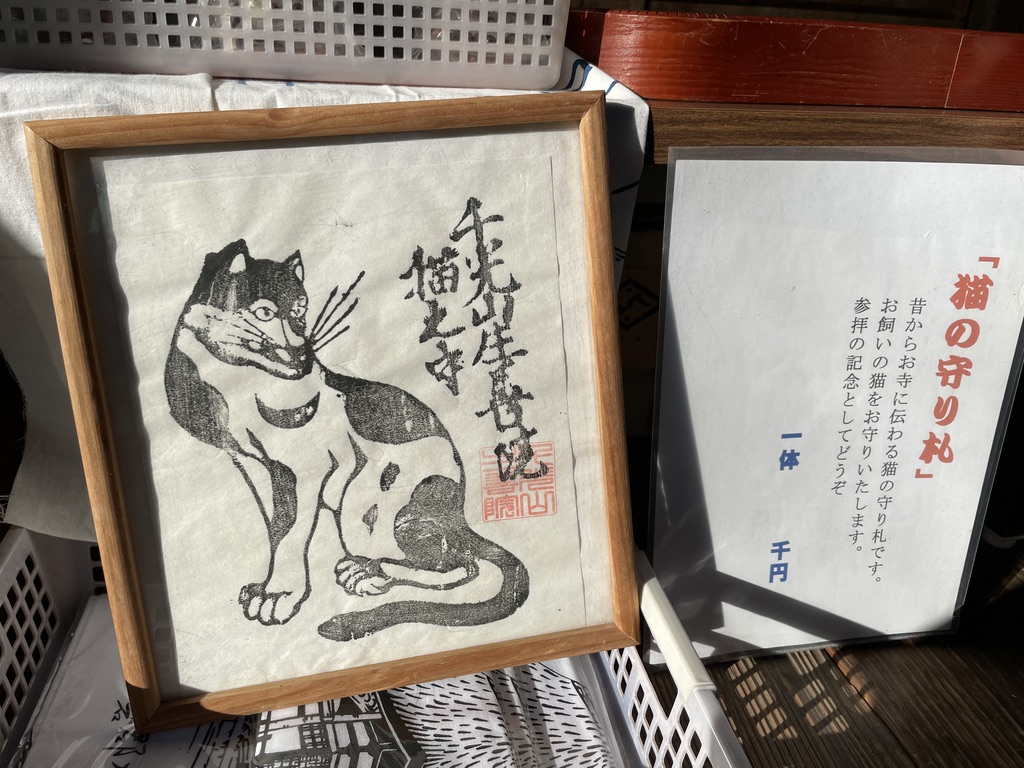 千光山生善院
猫之寺
「猫の守り札」
昔からお寺に伝わる猫の守り札です。
お飼いの猫をお守りいたします。
参拝の記念としてどうぞ
一体　千円